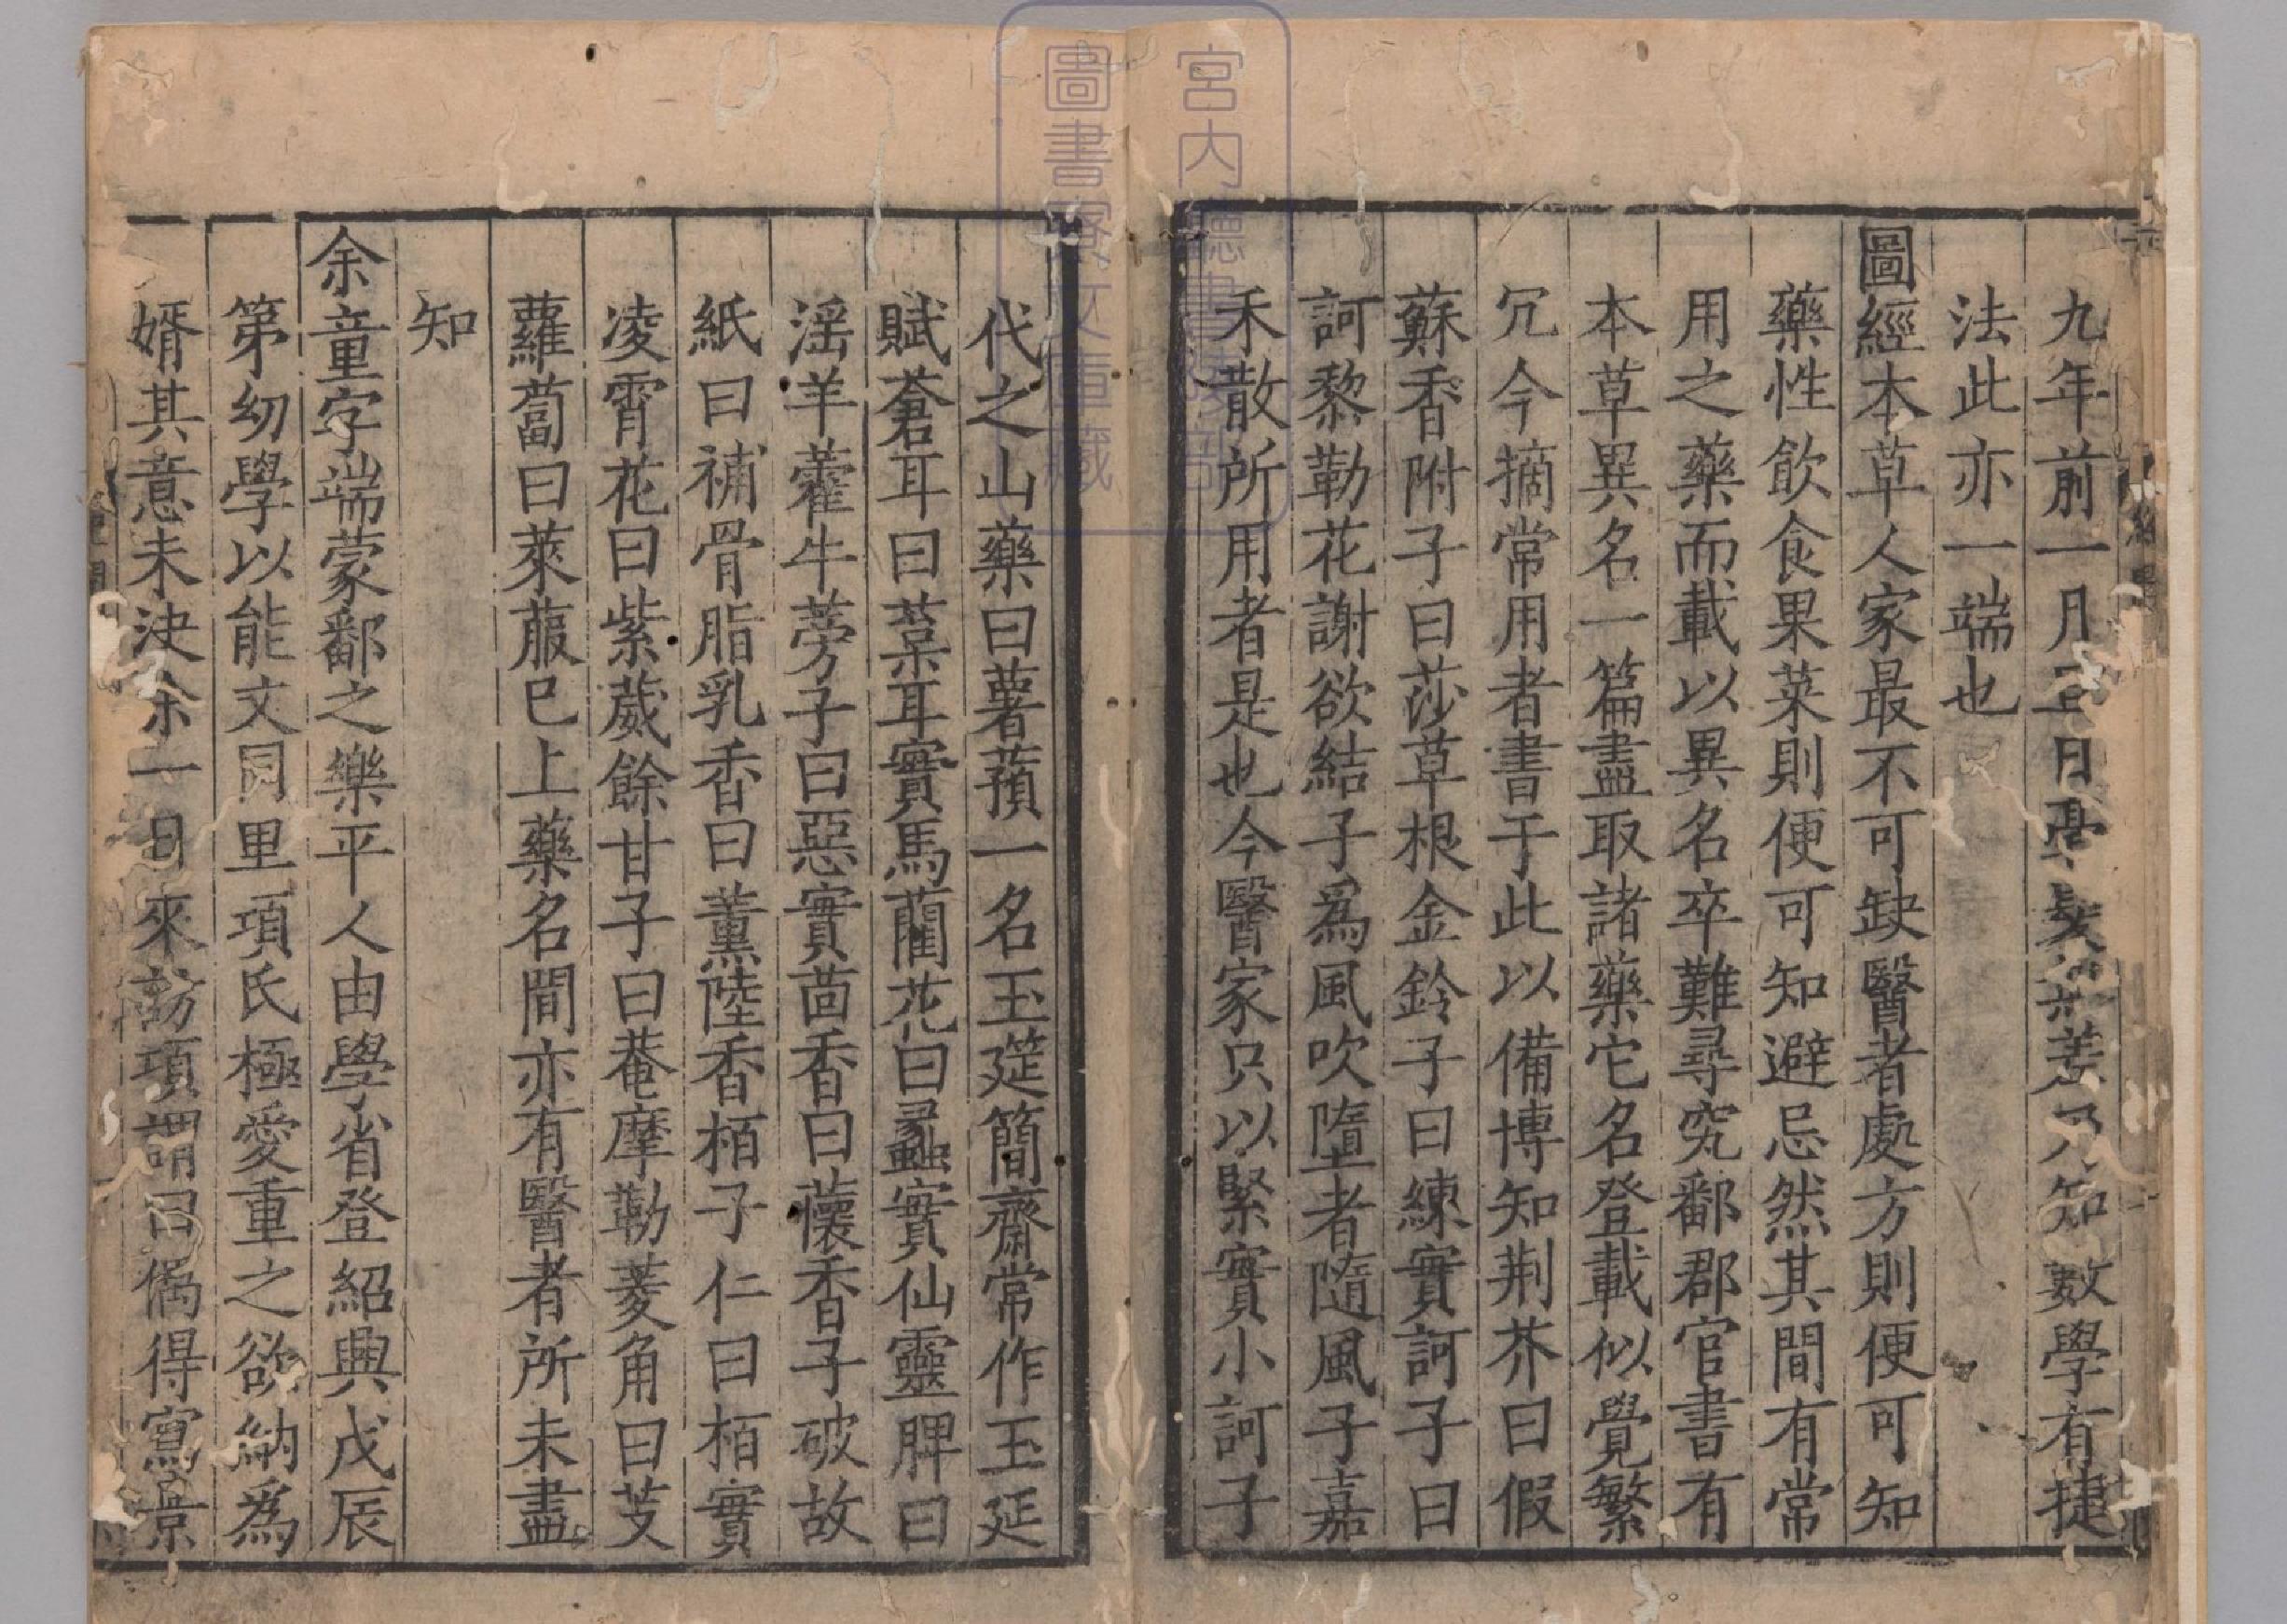 九年前一月三日亳髮無差乃知數學有捷
法此亦一端也
圖經本草人家最不可缺醫者處方則便可知
藥性飲食果菜則便可知避忌然其間有常
用之藥而載以異名卒難尋究鄱郡官書有
本草異名一篇盡取諸藥它名登載似覺繁
冗今摘常用者書于此以備博知荆芥曰假
蘇香附子曰莎草根金鈴子曰練實訶子曰
訶黎勒花謝欲結子爲風吹墮者隨風子嘉
禾散所用者是也今醫家只以緊實小訶子
代之山藥曰薯蕷一名玉筵簡齋常作玉延
賦蒼耳曰葈耳實馬藺花曰蠡實仙靈脾曰
淫羊藿牛蒡子曰惡實茴香曰蘹香子破故
紙曰補骨脂乳香曰薰陸香栢子仁曰栢實
凌霄花曰紫葳餘甘子曰菴摩勒菱角曰芰
蘿蔔曰萊菔巳上藥名間亦有醫者所未盡
知
余童字端蒙鄱之樂平人由學省登紹興戊辰
第幼學以能文同里項氏極愛重之欲納爲
婿其意未決余一日來訪項謂曰偶得寫景
宮内廳書陵部
圖書寮文庫藏